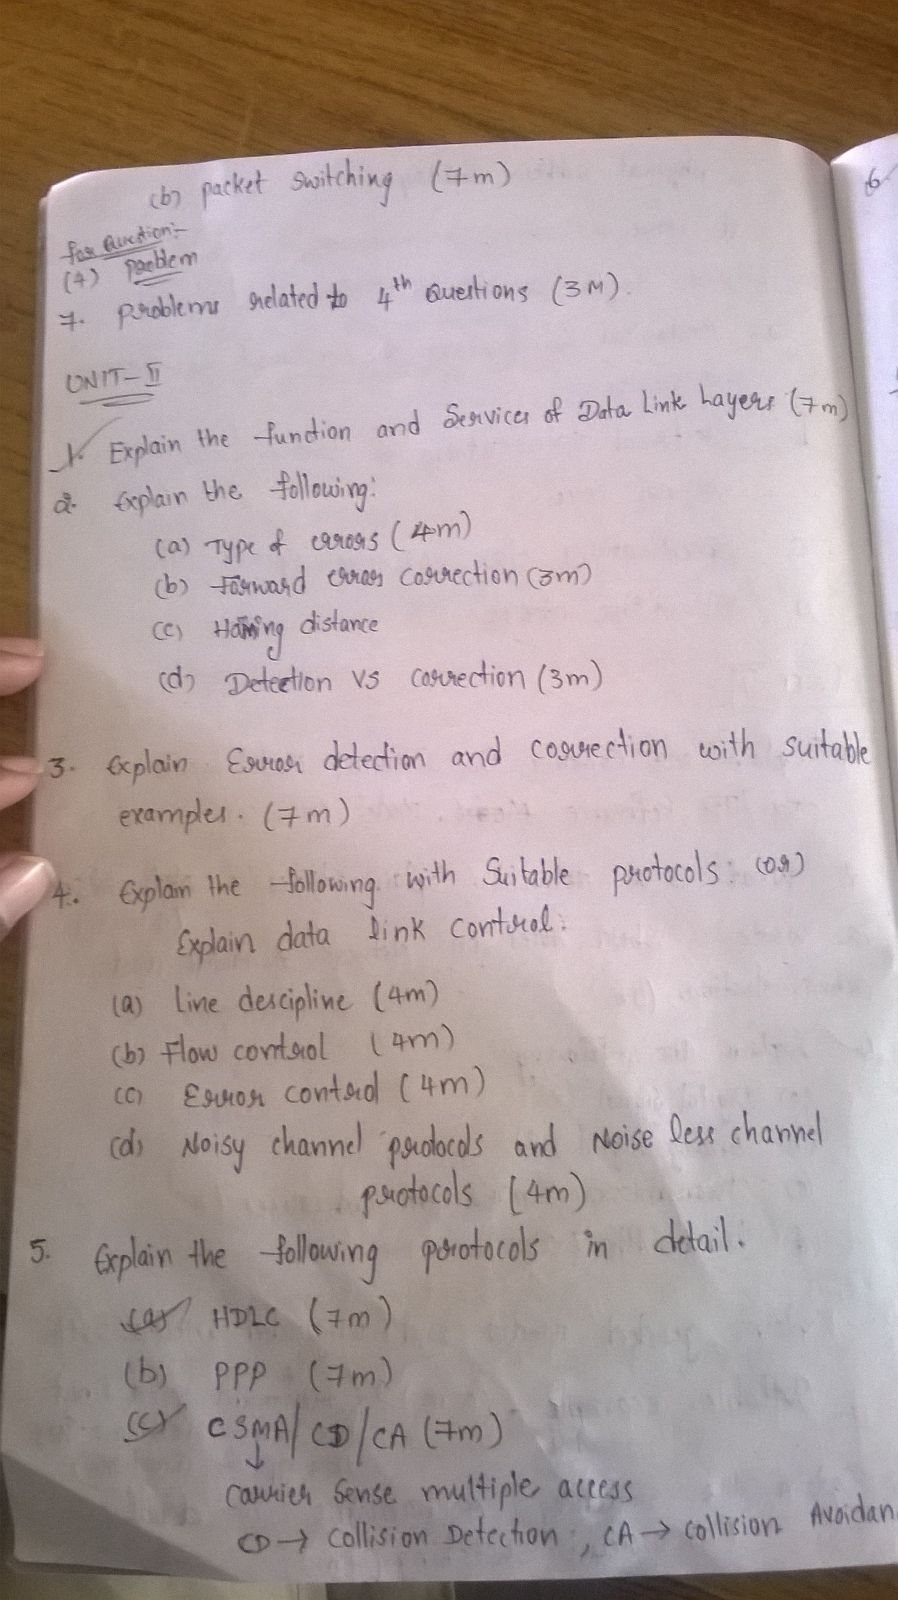 (b) packet switching (7m)
for Question:-
(4) problem
7. problems related to 4th Questions (3M).
UNIT-II
1. Explain the function and Services of Data Link Layers (7m)
2. Explain the following:
(a) Type of errors (4m)
(b) Forward error correction (3m)
(c) Haming distance
(d) Detection vs correction (3m)
3. Explain Error detection and correction with suitable
examples. (7m)
4. Explain the following with Suitable protocols: (or)
Explain data link control.
(a) Line descipline (4m)
(b) Flow control (4m)
(c) Error control (4m)
(d) Noisy channel protocols and Noise less channel
protocols (4m)
5. Explain the following protocols in detail.
(a) HDLC (7m)
(b) PPP (7m)
(c) CSMA/CD/CA (7m)
↓
Carrier Sense multiple access
CD → Collision Detection, CA → Collision Avoidan
6